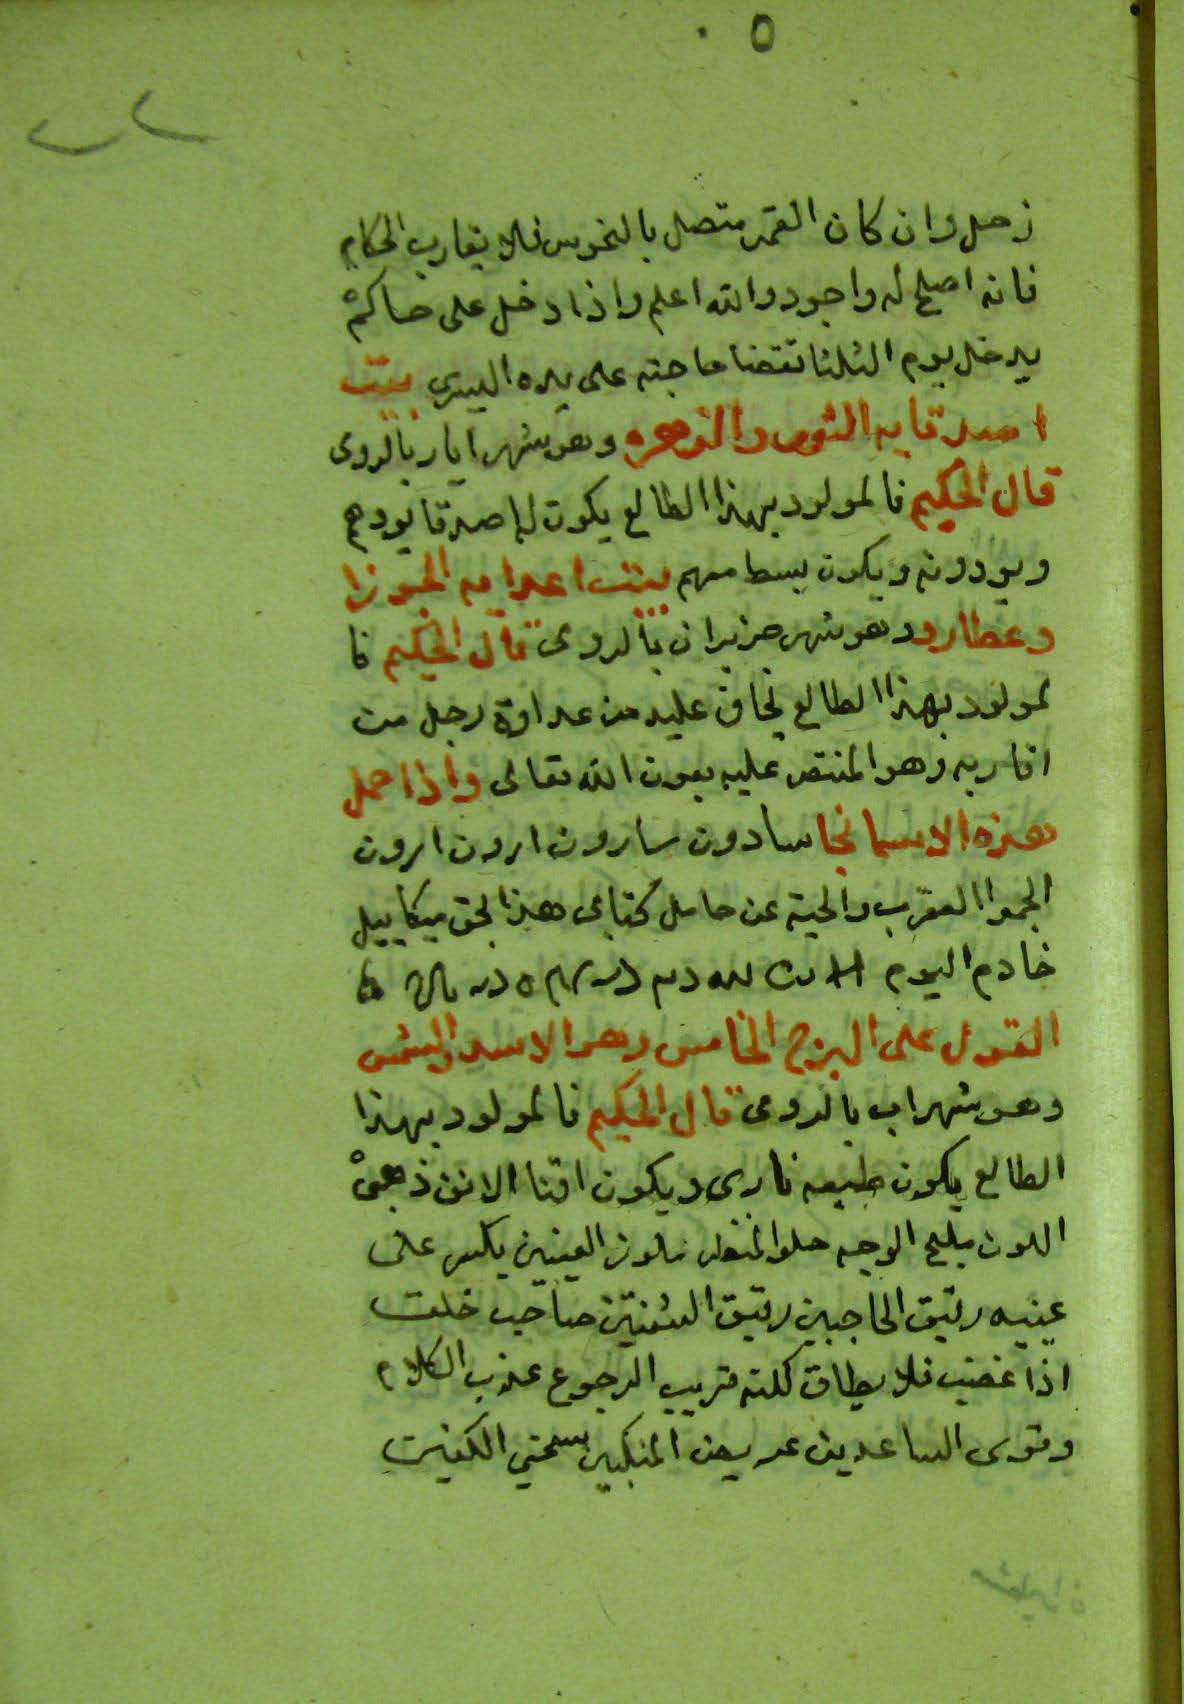 ٥
زحل وان كان القمر متصل بالنحوس فلا يقارب الحكام
فانه اصلح له واجود والله اعلم واذا دخل على حاكم
يدخل يوم الثلثا تقضا حاجته على يده اليسرى بيت
اصدقايه الثور والزهره وهو شهر ايار بالرومى
قال الحكيم فالمولود بهذا الطالع يكون له اصدقا يودهم
ويودونه ويكون بسط معهم بيت اعدايه الجوزا
وعطارد وهو شهر حزيران بالرومى قال الحكيم فا
لمولود بهذا الطالع يخاف عليه من عداوة رجل من
اقاربه وهو المنتصر عليه بعون الله تعالى واذا حمل
هذه الاسما نجا سادون سارون ارون ارون
الجموا العقرب والحية عن حامل كتابى هذا بحق ميكاييل
خادم اليوم
القول على البرج الخامس وهو الاسد والشمس
وهو شهر اب بالرومى قال الحكيم فالمولود بهذا
الطالع يكون طبيعه نارى ويكون اقنا الانف ذهبى
اللون مليح الوجه حلو المنظر ملون العينين يكسر على
عينيه رقيق الحاجبين رقيق الشفتين صاحب خلف
اذا غضب فلا يطاق كلته قريب الرجوع عذب الكلام
وقوى الساعدين عريض المنكبين سمحتي الكفين